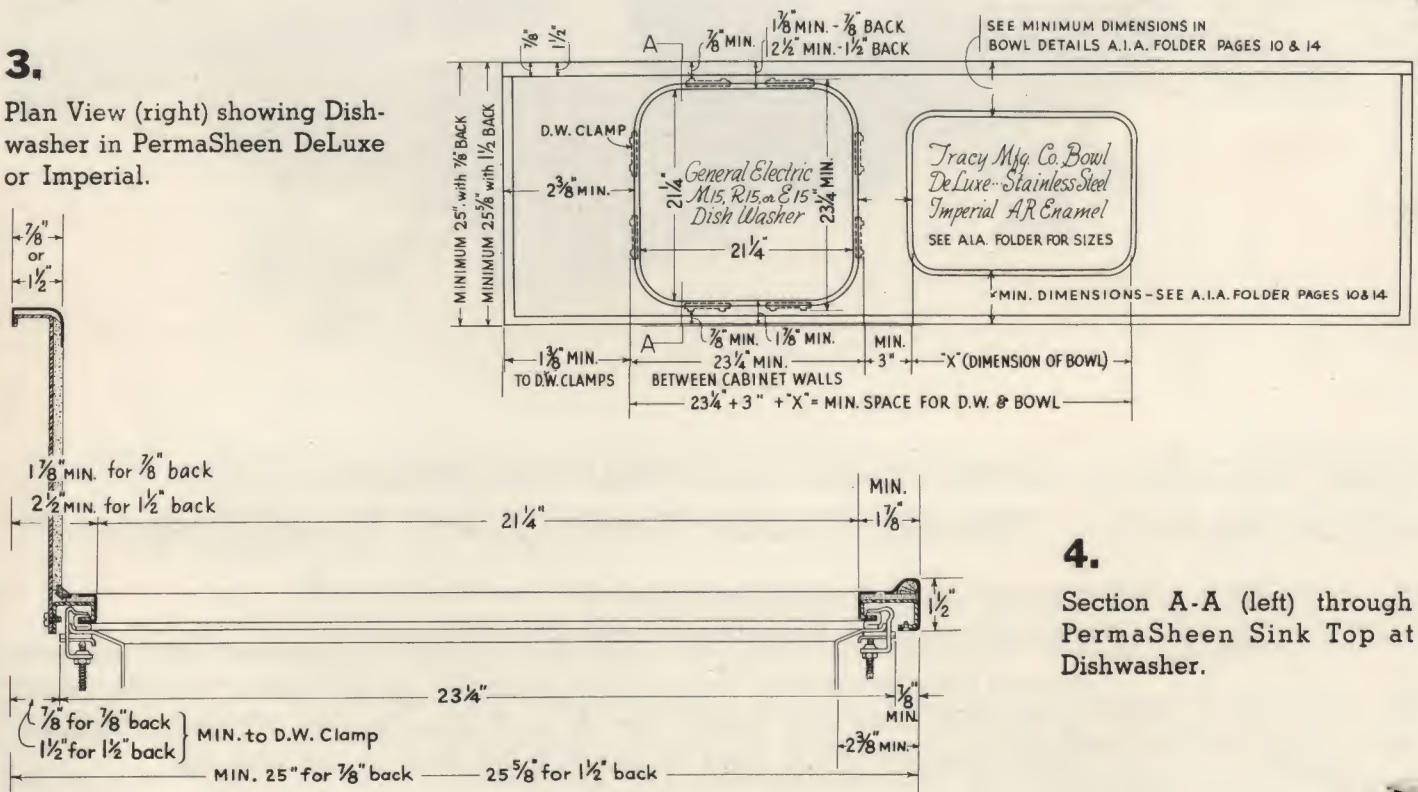 3.
Plan View (right) showing Dish-
washer in PermaSheen DeLuxe
or Imperial.
7/8"
1 1/2"
A
7/8" MIN.
1 7/8" MIN. - 7/8" BACK
2 1/2" MIN. - 1 1/2" BACK
SEE MINIMUM DIMENSIONS IN
BOWL DETAILS A.I.A. FOLDER PAGES 10 & 14
MINIMUM 25" with 7/8" BACK
MINIMUM 25 5/8" with 1 1/2 BACK
D.W. CLAMP
2 3/8" MIN.
21 1/4"
General Electric
M15, R15, or E15
Dish Washer
23 1/4" MIN.
21 1/4"
Tracy Mfg. Co. Bowl
DeLuxe-Stainless Steel
Imperial AR Enamel
SEE A.I.A. FOLDER FOR SIZES
MIN. DIMENSIONS - SEE A.I.A. FOLDER PAGES 10 & 14
A
7/8" MIN.
1 7/8" MIN.
1 3/8" MIN.
TO D.W. CLAMPS
23 1/4" MIN.
BETWEEN CABINET WALLS
MIN.
3"
"X" (DIMENSION OF BOWL)
23 1/4" + 3" + "X" = MIN. SPACE FOR D.W. & BOWL
7/8"
or
1 1/2"
1 7/8" MIN. for 7/8" back
2 1/2" MIN. for 1 1/2" back
21 1/4"
MIN.
1 7/8"
1 1/2"
23 1/4"
7/8"
MIN.
2 3/8" MIN.
7/8" for 7/8" back
1 1/2" for 1 1/2" back
MIN. to D.W. Clamp
MIN. 25" for 7/8" back 25 5/8" for 1 1/2" back
4.
Section A-A (left) through
PermaSheen Sink Top at
Dishwasher.